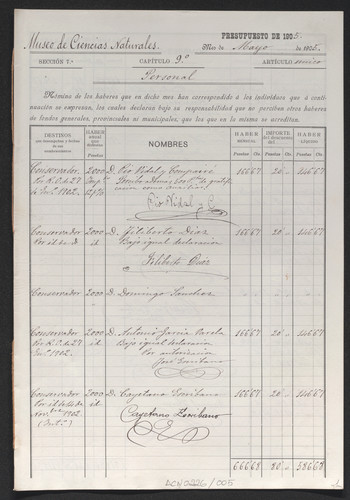 Museo de Ciencias Naturales.
PRESUPUESTO DE 1905.
Mes de Mayo de 1905.
SECCIÓN 7.ª CAPÍTULO 9.º ARTÍCULO único
Personal
Nómina de los haberes que en dicho mes han correspondido á los individuos que á conti-
nuación se expresan, los cuales declaran bajo su responsabilidad que no perciben otros haberes
de fondos generales, provinciales ni municipales, que los que en la misma se acreditan.
DESTINOS
HABER anual que disfrutan Pesetas
NOMBRES
HABER mensual. Pesetas Cts.
IMPORTE del descuento. Pesetas Cts.
HABER líquido. Pesetas Cts.
Conservador 2000 D. Pío Vidal y Compairé 166 67 20 " 146 67
Por R.O. de 27
de Junº 1902.
cación como auxiliar
Pío Vidal y C
Conservador 2000 D. Filiberto Díaz 166 67 20 " 146 67
Por id. id id Bajo igual declaración
Filiberto Díaz
Conservador 2000 D. Domingo Sánchez
Conservador 2000 D. Antonio García Varela 166 67 20 " 146 67
Por R.O. de 27 id. Bajo igual declaración
1902. Por autorización
Conservador 2000 D. Cayetano Escribano 166 67 20 " 146 67
id
1902
Cayetano Escribano
666 68 80 " 586 68
ACN0226/005